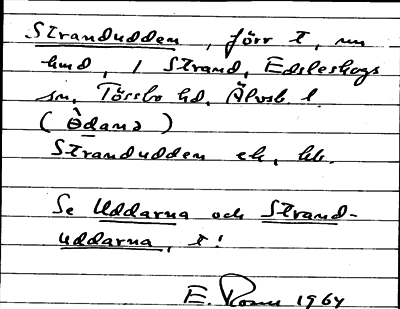 Strandudden, förr t, nu
hmd, i Strand, Edsleskogs
sn, Tössbo hd, Älvsb. l.
(Ödana)
Strandudden ek, hb.
Se Uddarna och Strand-
uddarna, t!
E. 1964